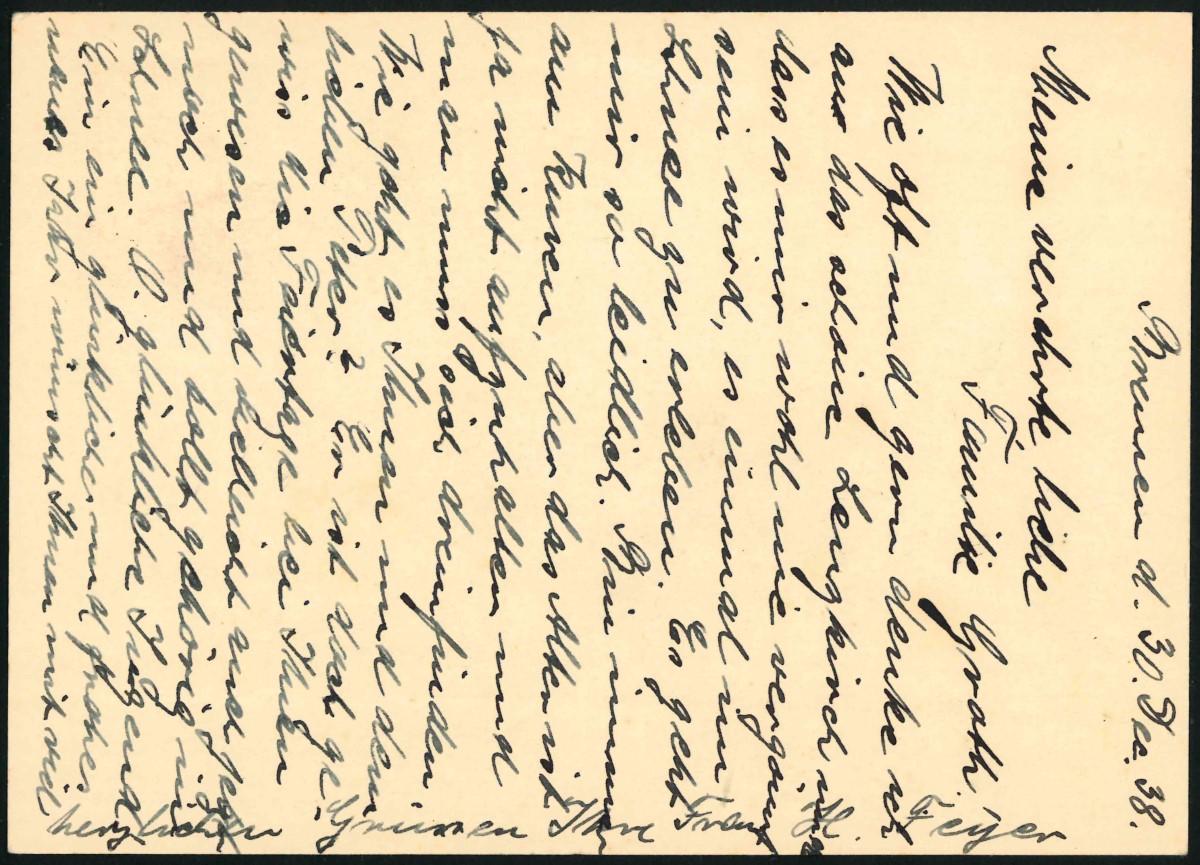 Bremen d. 30. Dez. 38.
Meine verehrte liebe
Familie Groth.
Wie oft und gern denke ich
an das schöne Lenzkirch,
dass es mir wohl nie vergönnt
sein wird, es einmal im
Schnee zu erleben. Es geht
mir so leidlich. Bin immer
am Kuren, aber das Alter ist
ja nicht aufzuhalten und
man muss sich dreinfinden
Wie geht es Ihnen und dem
lieben Peter? Er ist doch ge-
wiss die Feiertage bei Ihnen
gewesen und vielleicht auch jetzt
noch und tollt gehörig im
Schnee. O. glückliche Jugend
Ein ein glückliches und frohes
neues Jahr wünscht Ihnen mit viel
herzlichen Grüssen Ihre Frau H. Feyer